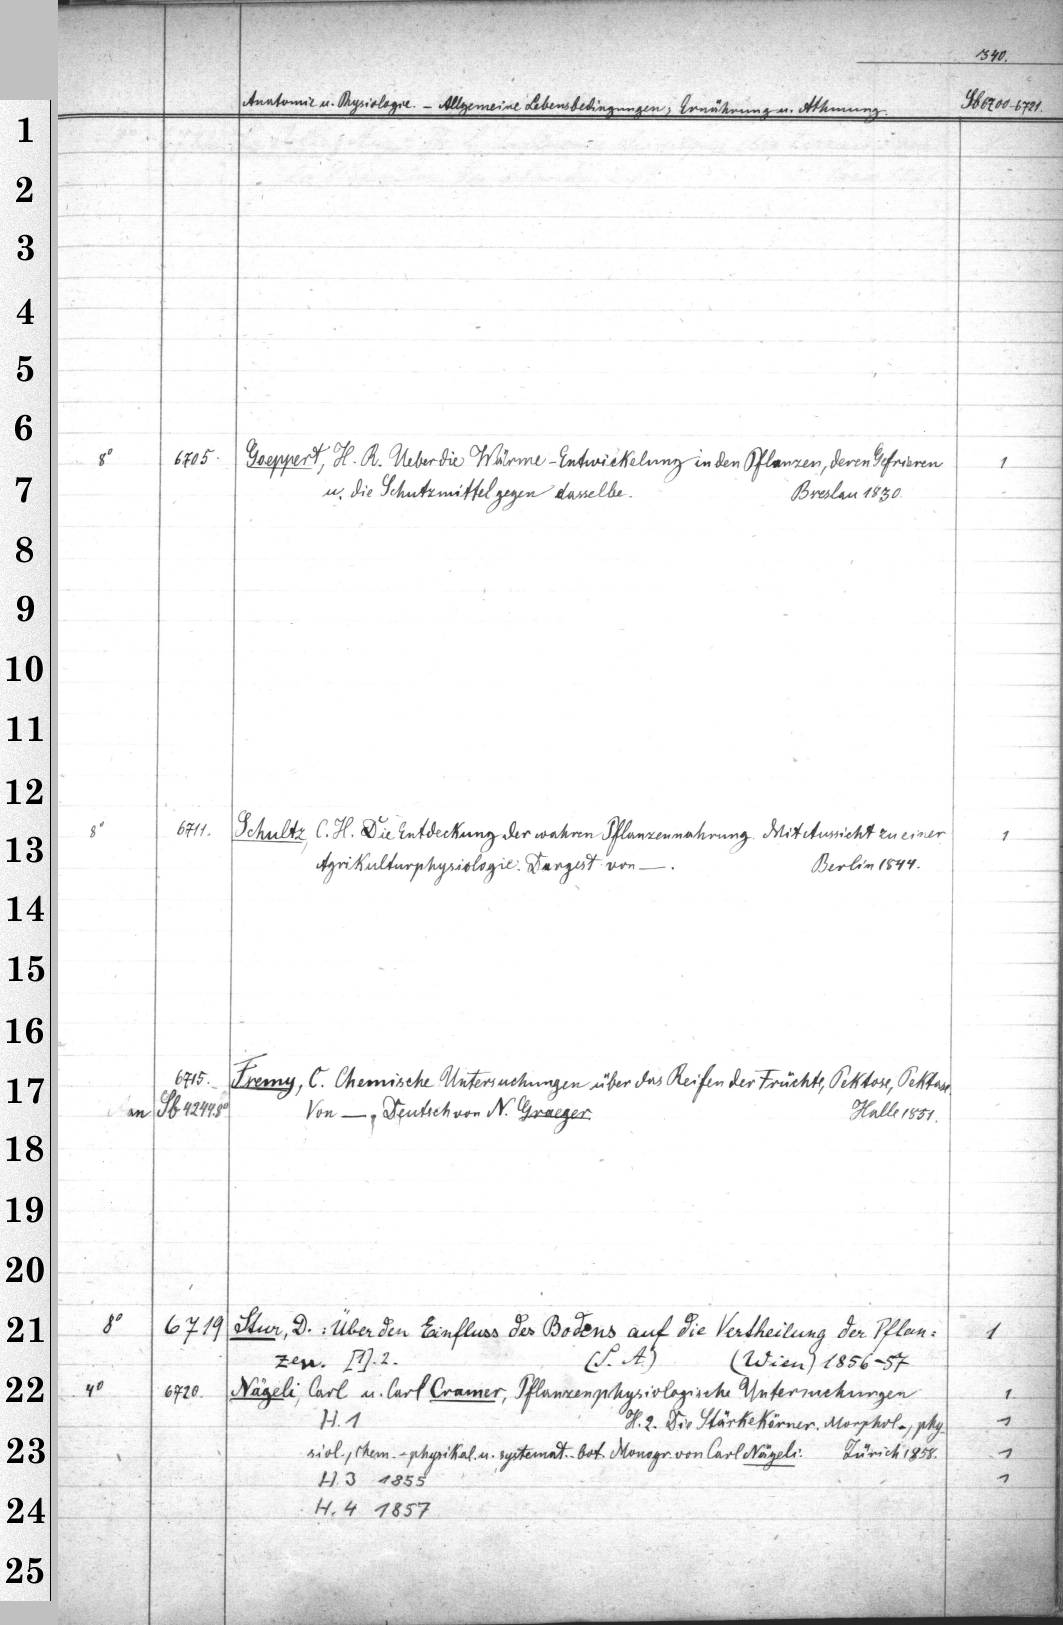 340.
Anatomie u. Physiologie. – Allgemeine Lebensbedingungen; Ernährung u. Athmung. Sb 6700–6721.
1
2
3
4
5
6
8° 6705. Goeppert, H. R. Ueber die Wärme-Entwickelung in den Pflanzen, deren Gefrieren 1
7
u. die Schutzmittel gegen dasselbe. Breslau 1830.
8
9
10
11
12
8° 6711. Schultz, C. H. Die Entdeckung der wahren Pflanzennahrung. Mit Aussicht zu einer 1
13
Agrikulturphysiologie. Dargest von —. Berlin 1844.
14
15
16
6715. Fremy, C. Chemische Untersuchungen über das Reifen der Früchte, Pektose, Pektase.
17
an Sb 4244 8° Von —, Deutsch von N. Graeger. Halle 1851.
18
19
20
21 8° 6719 Stur, D. : Über den Einfluss des Bodens auf die Vertheilung der Pflan= 1
zen. [1]. 2. (S. A.) (Wien) 1856–57
22 4° 6720. Nägeli, Carl u. Carl Cramer, Pflanzenphysiologische Untersuchungen 1
H. 1 H. 2. Die Stärkekörner. Morphol., phy- 1
23 siol., chem.-physikal. u. systemat.-bot. Monogr. von Carl Nägeli. Zürich 1858. 1
H. 3 1855 1
24 H. 4 1857
25